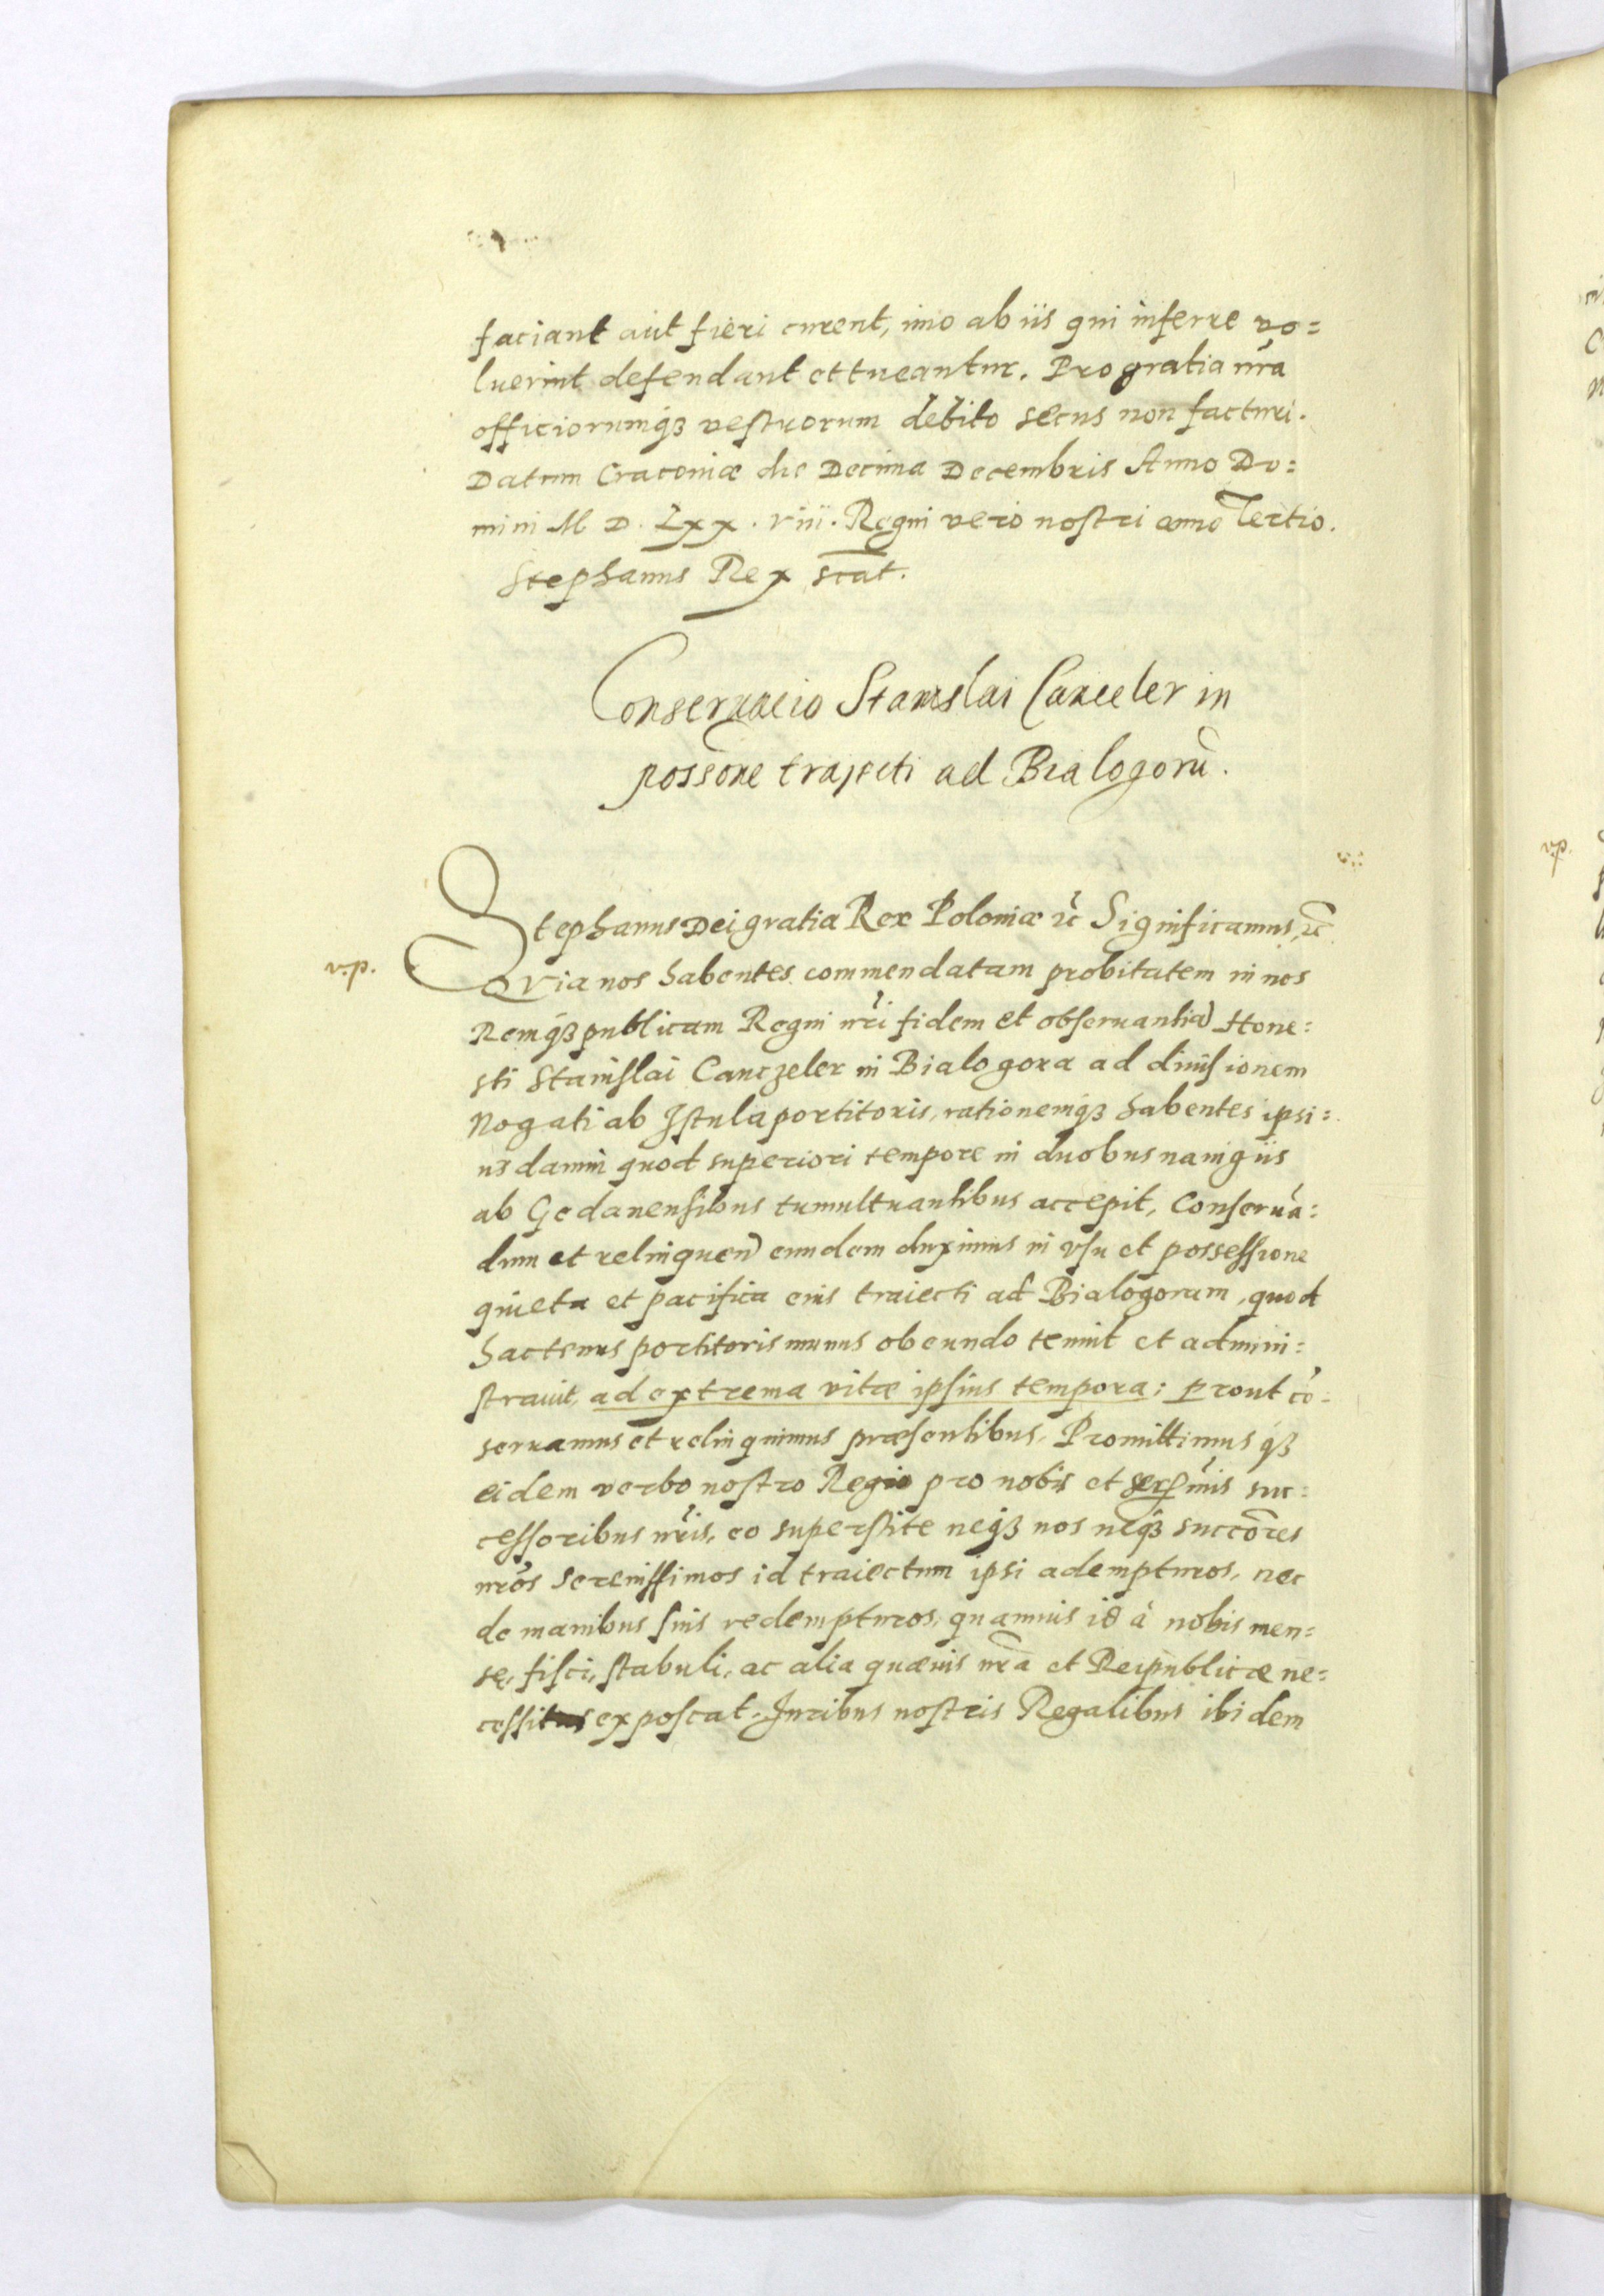 faciant aut fieri curent, imo ab iis qui inferre vo=
luerint defendant et tueantur. Pro gratia nrã
officiorumqꝫ vestrorum debito secus non facturi.
Datum Cracoviæ die Decima Decembris Anno Do=
mini M D. Lxx. viii. Regni vero nostri anno Tertio.
Stephanus Rex scat.
Conservacio Stanislai Canceler in
possone trajecti ad Bialogorũ.
Stephanus Dei gratia Rex Poloniæ ꝛc Significamus, ꝛc
v.p.
Qvia nos habentes commendatam probitatem in nos
Remqꝫ publicam Regni nri fidem et obseruantiã Hone=
sti Stanislai Canczeler in Bialogora ad diuisionem
Nogati ab Istula portitoris, rationemqꝫ habentes ipsi=
us damni quod superiori tempore in duobus nauigiis
ab Gedanensibus tumultuantibus accepit, Conseruã=
dum et relinquen) eundem duximus in vsu et possessione
quieta et pacifica eius traiecti ad Bialogoram, quod
hactenus portitoris munus obeundo tenuit et admini=
strauit, ad extrema vitæ ipsius tempora; prout cõ=
seruamus et relinquimus præsentibus. Promittimus qꝫ
eidem verbo nostro Regio pro nobis et sermis suc=
cessoribus nris, eo superstite neqꝫ nos neqꝫ succõres
nros Serenissimos id traiectum ipsi adempturos, nec
de manibus suis redempturos, quamuis id à nobis men=
se, fisci, stabuli, ac alia quæuis nrã et Reipublicæ ne=
cessitas exposcat. Iuribus nostris Regalibus ibidem
v.p.